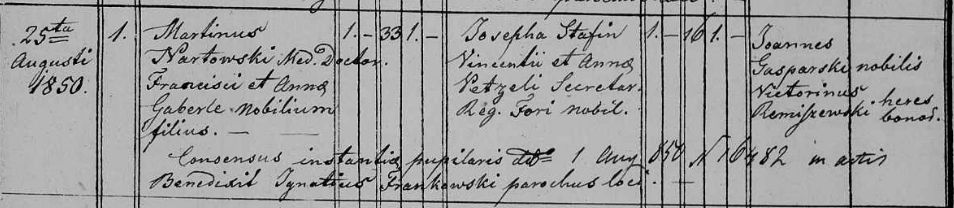 25ta Augusti 1850. 1. Martinus 1. – 33 1. – Josepha Stafin 1. – 16 1. – Joannes
Nartowski Med. Doctor. Vincentii et Annæ Gasparski nobilis
Francisci et Annæ Petzeli Secretar. Victorinus
Gaberle Nobilium Reg. Fori nobil. Remiszewski heres bonor.
filius. –
Consensus instantiæ pupilaris dto 1 Aug 850 N 16482 in actis
Benedixit Ignatius Frankowski parochus loci. –